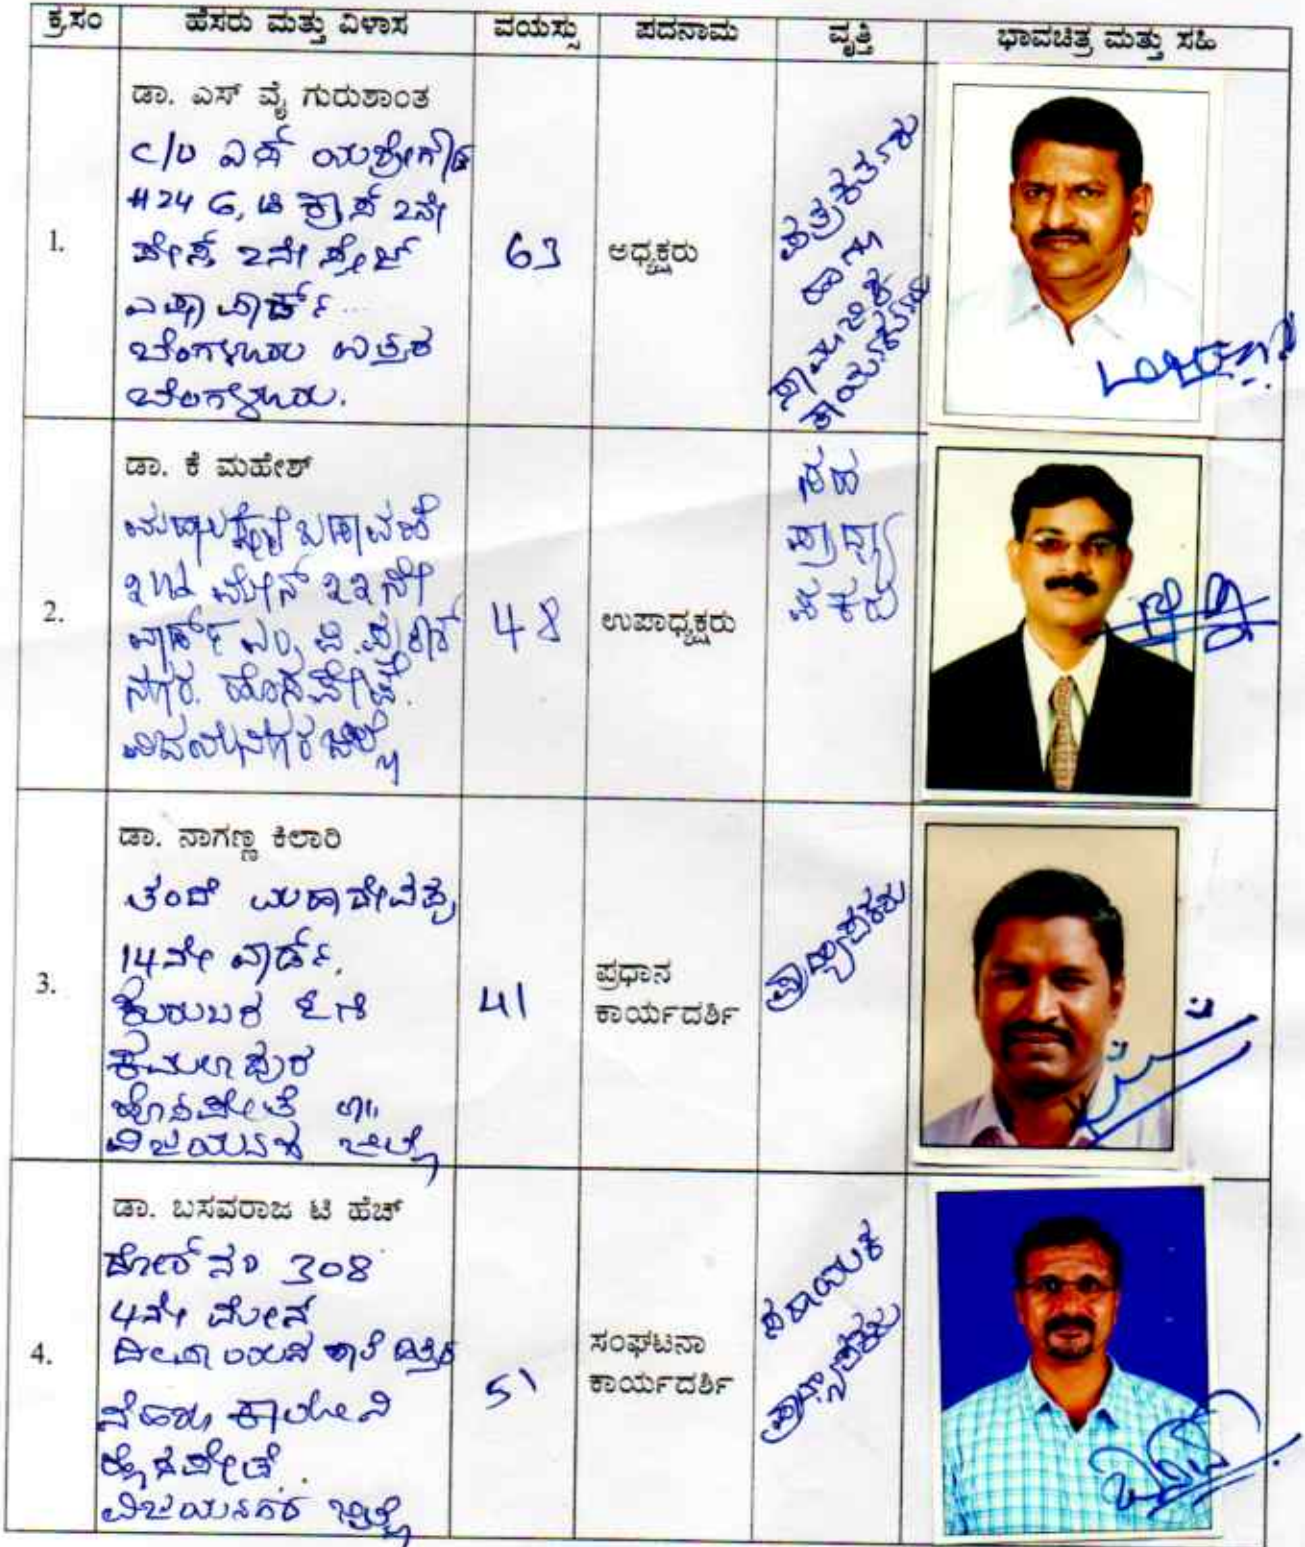 ಕ್ರ.ಸಂ ಹೆಸರು ಮತ್ತು ವಿಳಾಸ ವಯಸ್ಸು ಪದನಾಮ ವೃತ್ತಿ ಭಾವಚಿತ್ರ ಮತ್ತು ಸಹಿ
1.
ಡಾ. ಎಸ್ ವೈ ಗುರುಶಾಂತ
C/o ಎಸ್
#24 G, ಕ್ರಾಸ್ 2ನೇ
ಪೇಸ್ 2ನೇ ಸ್ಟೇಜ್
ಪಾರ್ಕ್
ಬೆಂಗಳೂರು ಉತ್ತರ
ಬೆಂಗಳೂರು.
63
ಅಧ್ಯಕ್ಷರು
ಪತ್ರಕರ್ತರು
ಹಾಗೂ
ಸಾಮಾಜಿಕ
2.
ಡಾ. ಕೆ ಮಹೇಶ್
ಬಡಾವಣೆ
ಮೇನ್ ೩೩ನೇ
ವಾರ್ಡ್ ಎಂ. ಪಿ. ಪ್ರಕಾಶ್
ನಗರ. ಹೊಸಪೇಟೆ.
ವಿಜಯನಗರ ಜಿಲ್ಲೆ
48
ಉಪಾಧ್ಯಕ್ಷರು
ಸಹ
ಪ್ರಾಧ್ಯಾ
ಪಕರು
3.
ಡಾ. ನಾಗಣ್ಣ ಕಿಲಾರಿ
ತಂದೆ ಮಹಾದೇವಪ್ಪ
14ನೇ ವಾರ್ಡ್,
ಕುರುಬರ ಓಣಿ
ಕಮಲಾಪುರ
ಹೊಸಪೇಟೆ ತಾ॥
ವಿಜಯನಗರ ಜಿಲ್ಲೆ
41
ಪ್ರಧಾನ
ಕಾರ್ಯದರ್ಶಿ
ಪ್ರಾಧ್ಯಾಪಕರು
4.
ಡಾ. ಬಸವರಾಜ ಟಿ ಹೆಚ್
ಡೋರ್ ನಂ 308
4ನೇ ಮೇನ್
ನೆಹರು ಕಾಲೋನಿ
ಹೊಸಪೇಟೆ
ವಿಜಯನಗರ ಜಿಲ್ಲೆ
51
ಸಂಘಟನಾ
ಕಾರ್ಯದರ್ಶಿ
ಸಹಾಯಕ
ಪ್ರಾಧ್ಯಾಪಕರು